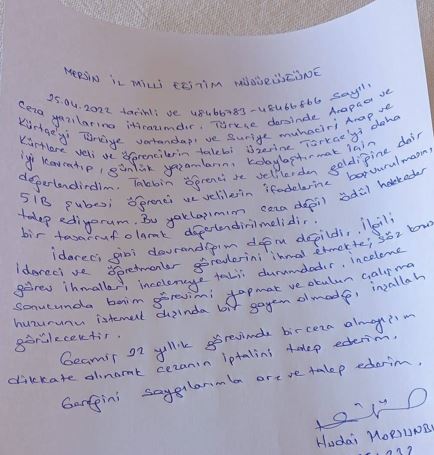 MERSİN İL MİLLİ EĞİTİM MÜDÜRLÜĞÜNE
25.04.2022 tarihli ve 48466783-48466866 sayılı,
ceza yazılarına itirazımdır. Türkçe dersinde Arapça ve
Kürtçe'yi Türkiye vatandaşı ve Suriye muhaciri Arap ve
Kürtlere veli ve öğrencilerin talebi üzerine Türkçe'yi daha
iyi kavratıp, günlük yaşamlarını kolaylaştırmak için
değerlendirdim. Talebin öğrenci ve velilerden geldiğine dair
5/B şubesi öğrenci ve velilerin ifadelerine başvurulmasını
talep ediyorum. Bu yaklaşımım ceza değil ödül hakkeder
bir tasarruf olarak değerlendirilmelidir.
İdareci gibi davrandığım doğru değildir. İlgili
idareci ve öğretmenler görevlerini ihmal etmekte, söz konusu
görev ihmalleri incelemeye tabii durumdadır. İnceleme
sonucunda benim görevimi yapmak ve okulun çalışma
huzurunu istemek dışında bir gayem olmadığı inşallah
görülecektir.
Geçmiş 22 yıllık görevimde bir ceza almayışım
dikkate alınarak cezanın iptalini talep ederim.
Gereğini saygılarımla arz ve talep ederim.
Hudai